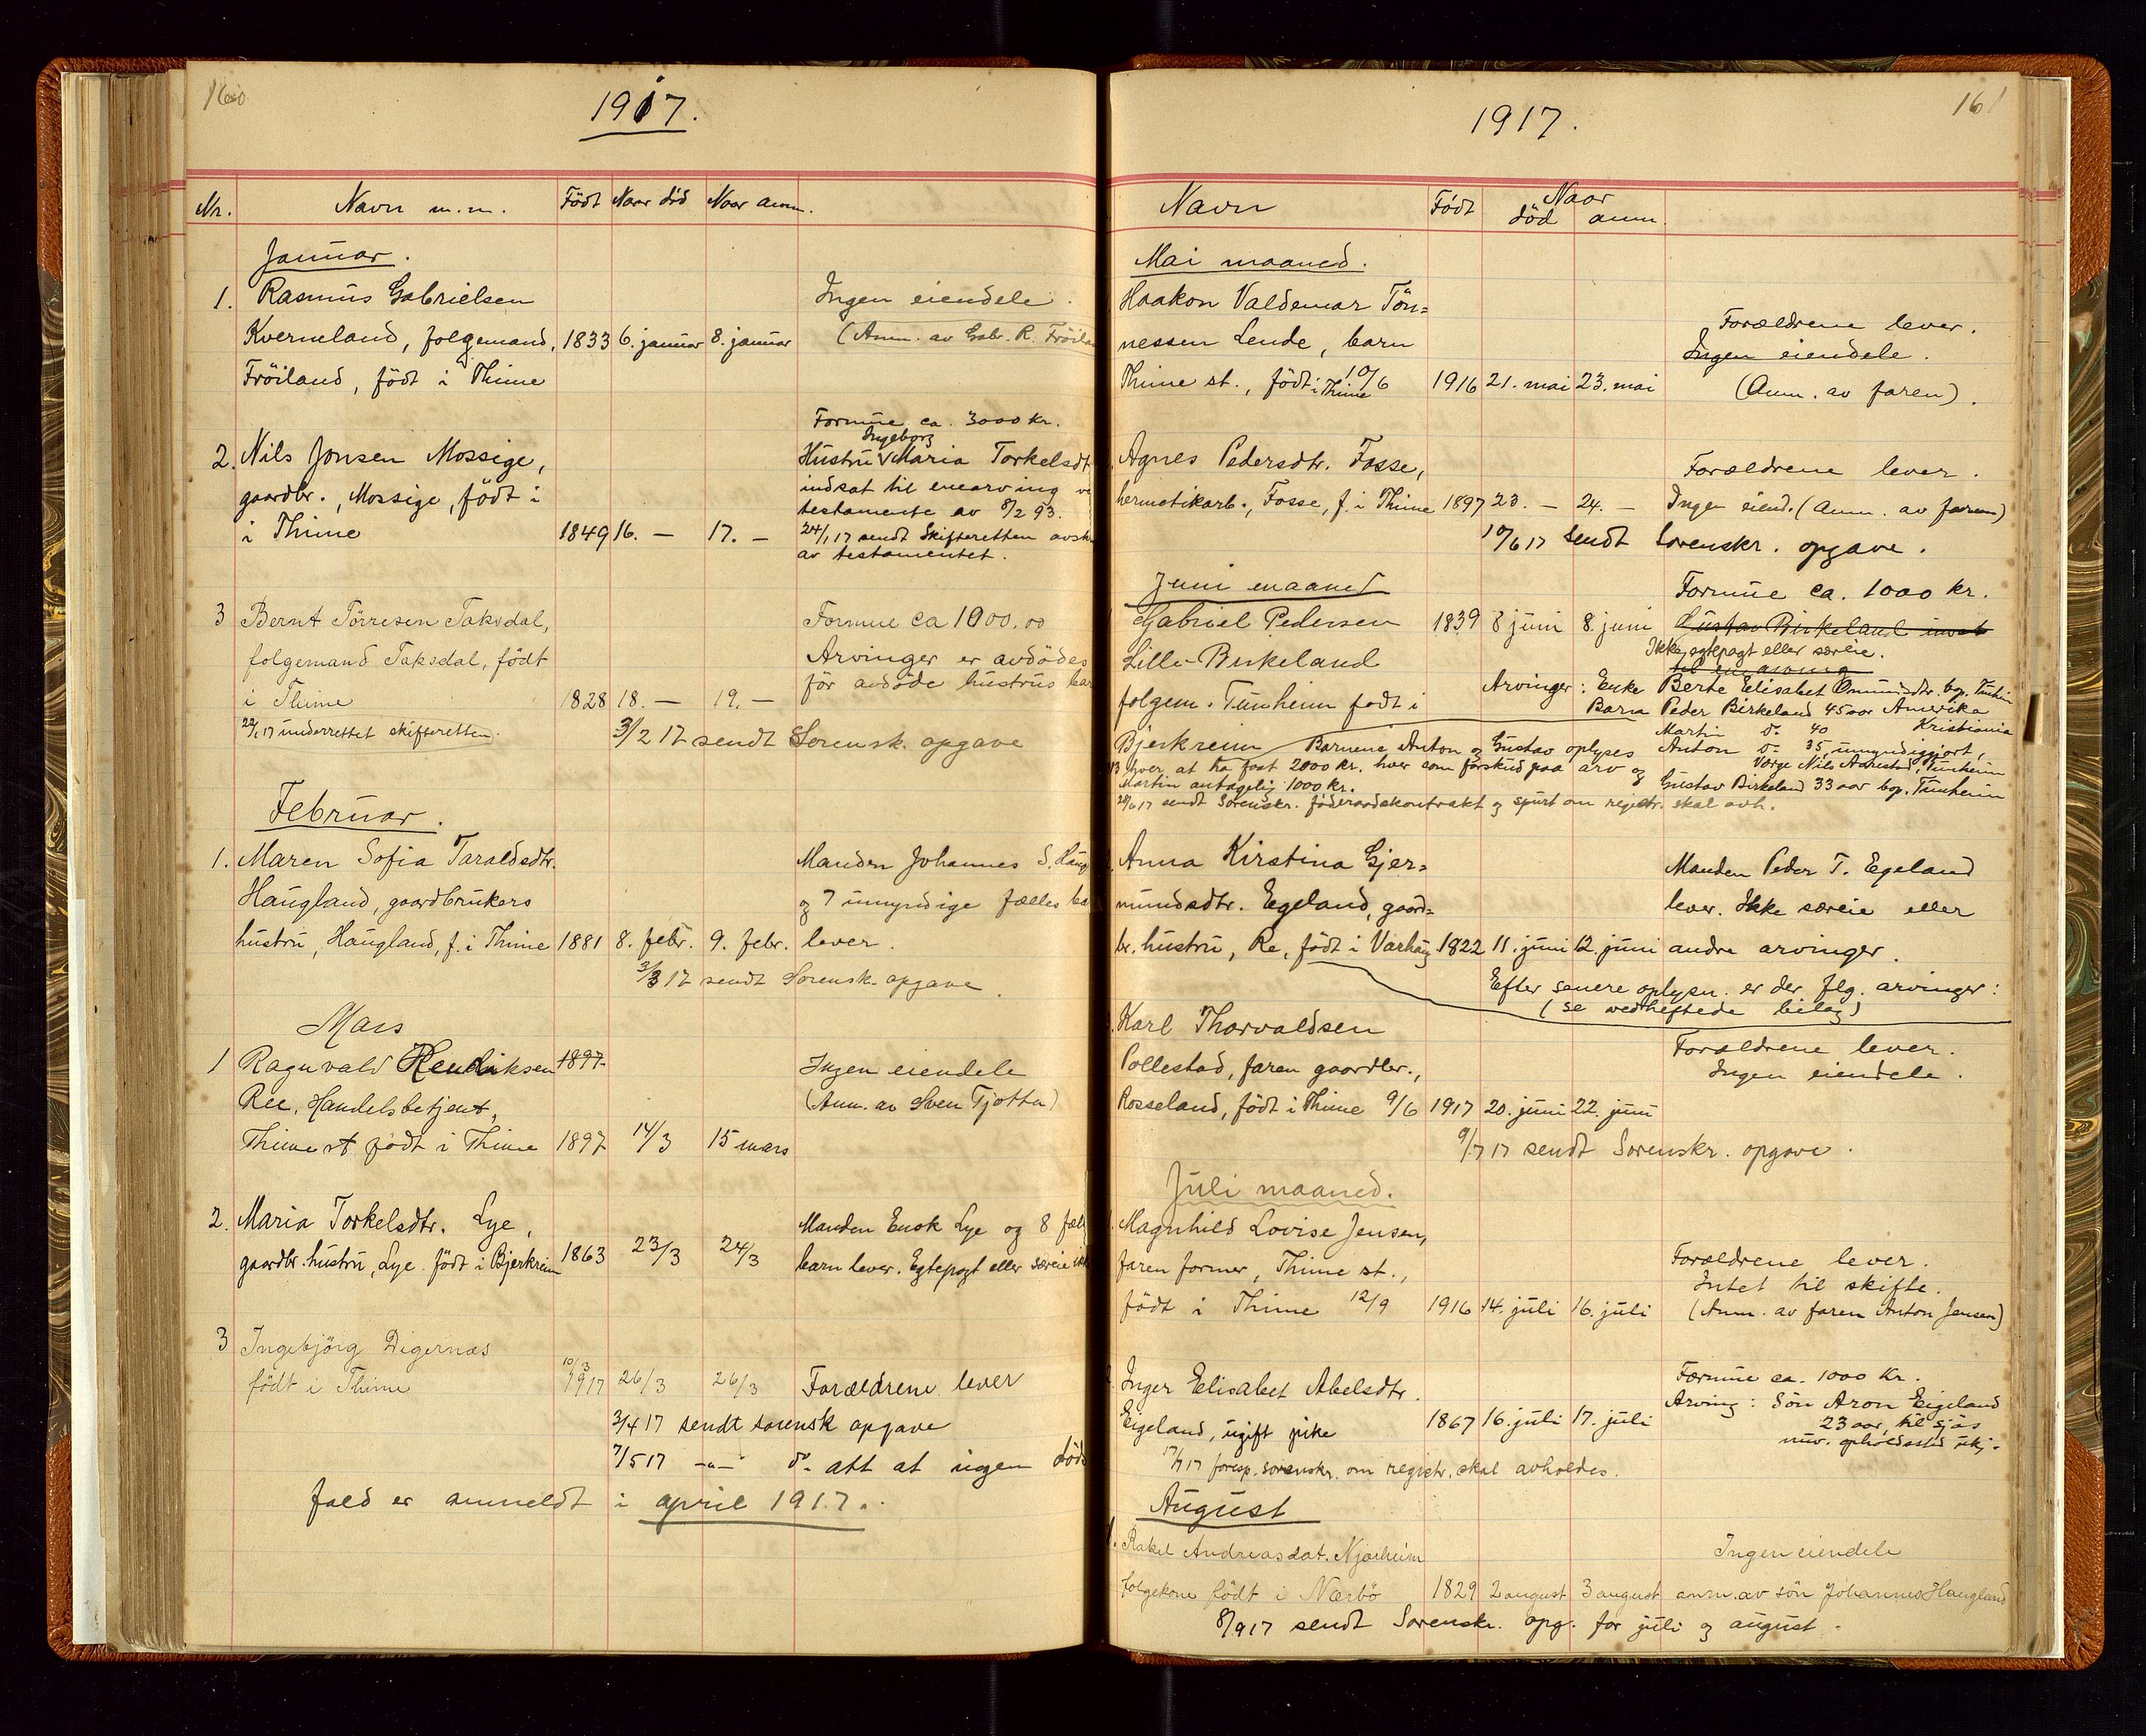 160
1917.
Nr. Navn m.m. Födt Naar död Naar anm.
Januar.
1. Rasmus Gabrielsen Ingen eiendele.
Kverneland, folgemand, 1833 6. januar 8. januar (Anm. av Gabr. R. Fröiland
Fröiland, födt i Thime
Formue ca. 3000 kr.
Ingeborg
2. Nils Jonsen Mossige, Hustru V Maria Torkelsdt
gaardbr., Mossige, födt i indsat til enearving
testamente av 8/2 93.
i Thime 1849 16. — 17. — 24/1 17 sendt Skifteretten
av testamentet.
3 Bernt Törresen Taksdal, Formue ca 1000,00
folgemand Taksdal, födt Arvinger er avdödes
i Thime 1828 18. — 19. — för avdöde hustrus
22/1 17 underrettet skifteretten.
3/2 17 sendt Sorensk. opgave
Februar.
1. Maren Sofia Taraldsdtr. Manden Johannes S. Haug
Haugland, gaardbrukers og 7 umyndige fælles
hustru, Haugland, f. i Thime 1881 8. febr. 9. febr. lever.
3/3 17 sendt Sorensk. opgave.
Mars
1 Ragnvald Hendriksen 1897 Ingen eiendele
Ree, Handelsbetjent, (Anm. av Sven Tjotta)
Thime st födt i Thime 1897 14/3 15 mars
2. Maria Torkelsdtr. Lye, Manden Enok Lye og 8 fæl
gaardbr. hustru, Lye födt i Bjerkreim 1863 23/3 24/3 barn lever. Egtepagt eller særeie
3 Ingebjörg Digernæs
födt i Thime 10/3 1917 26/3 26/3 Forældrene lever
3/4 17 sendt sorensk opgave
7/5 17 —"— do att at ingen döds
fald er anmeldt i april 1917.
161
1917.
Navn Födt Naar
död anm.
Mai maaned.
Haakon Valdemar Tön=
Forældrene lever.
nessen Lende, barn Ingen eiendele.
Thime st., födt i Thime 10/6 1916 21. mai 23. mai (Anm. av faren).
Agnes Pedersdtr. Fosse, Forældrene lever.
hermetikarb., Fosse, f. i Thime 1897 23. — 24. — Ingen eiend. (Anm. av faren)
10/6 17 sendt Sorenskr. opgave.
Juni maaned Formue ca. 1000 kr.
Gabriel Pedersen 1839 8 juni 8. juni Gustav Birkeland
Lille-Birkeland Ikke egtepagt eller særeie.
folgem. Tunheim født i Arvinger: Enke Berte Elisabet Omundsdtr. bop. Tunheim
Barn Peder Birkeland 45 aar Amerika
Martin do 40 Kristiania
Bjerkreim Barnene Anton og Gustav oplyses Anton do 35, umyndiggjort,
Værge Nils Aarestad, Tunheim
at ha faat 2000 kr. hver som forskud paa arv og Gustav Birkeland 33 aar bop. Tunheim
Martin antagelig 1000 kr.
28/6 17 sendt Sorenskr. föderaadskontrakt og spurt om registr. skal avh.
Anna Kirstina Gjer= Manden Peder T. Egeland
mundsdtr. Egeland, gaard= lever. Ikke særeie eller
br. hustru, Re, födt i Varhaug 1822 11. juni 12. juni andre arvinger.
Efter senere oplysn. er der flg. arvinger:
(se vedheftede bilag)
Karl Thorvaldsen Forældrene lever.
Pollestad, faren gaardbr., Ingen eiendele.
Rosseland, födt i Thime 9/6 1917 20. juni 22. juni
9/7 17 sendt Sorenskr. opgave.
Juli maaned.
Magnhild Lovise Jensen, Forældrene lever.
faren former, Thime st., Intet til skifte.
födt i Thime 12/9 1916 14. juli 16. juli (Anm. av faren Anton Jensen)
Inger Elisabet Abelsdtr. Formue ca. 1000 Kr.
Eigeland, ugift pike 1867 16. juli 17. juli Arving: Sön Aron Eigeland
23 aar, til sjös
nuv. opholdssted ukj.
17/7 17 foresp. sorenskr. om registr. skal avholdes.
August
1. Rakel Andreasdat. Njærheim Ingen eiendele
folgekone födt i Nærbö 1829 2 august 3 august anm. av sön Johannes Haugland
8/9 17 sendt Sorenskr. opg. for juli og august.